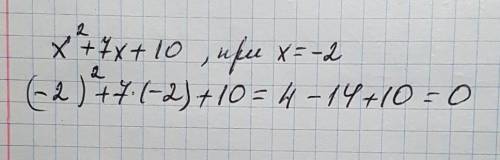 x²+7x+10, при x=-2
(-2)²+7·(-2)+10=4-14+10=0